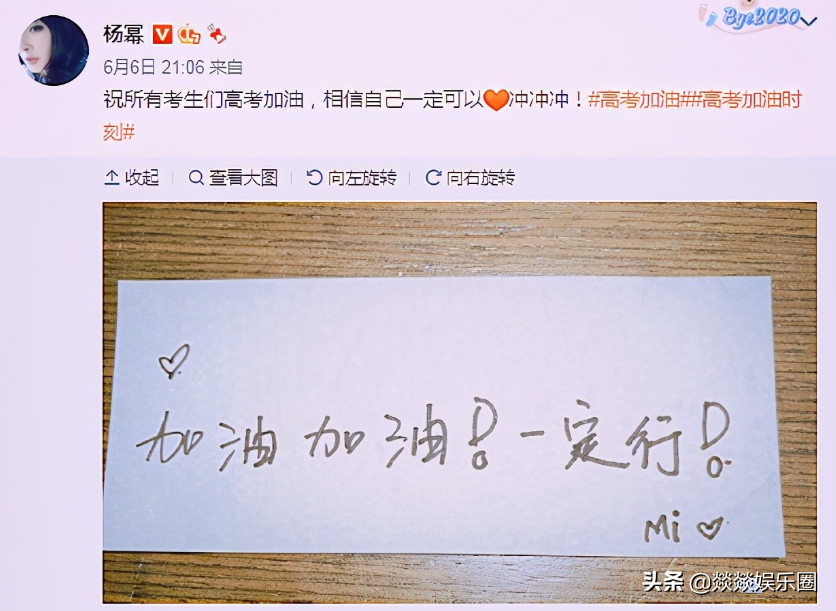 Bye2020
杨幂
6月6日 21:06 来自
祝所有考生们高考加油，相信自己一定可以🧡冲冲冲！#高考加油##高考加油时
刻#
收起 查看大图 向左旋转 向右旋转
加油加油！一定行！
Mi
头条 @燚燚娱乐圈